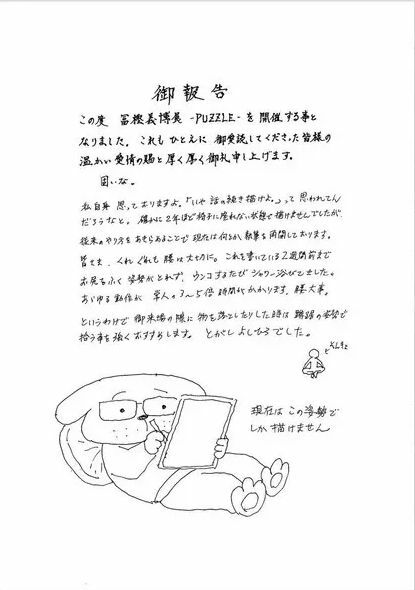 御報告
この度 冨樫義博展 -PUZZLE- を開催する事と
なりました。これもひとえに御愛読してくださった皆様の
温かい愛情の賜と厚く厚く御礼申し上げます。
固いな。
私自身 思っておりますよ。「いや 話の続き描けよ。」って思われてん
だろうなと。確かに2年ほど椅子に座れない状態で描けませんでしたが
従来のやり方をあきらめることで現在は何とか執筆を再開しております。
皆さま、くれぐれも腰は大切に。これを書いている2週間前まで
お尻をふく姿勢がとれず、ウンコするたびシャワー浴びてました。
あらゆる動作が 常人の3〜5倍時間がかかります。腰大事。
というわけで 御来場の際に物を落としたりした時は 蹲踞の姿勢で
拾う事を強くおすすめします。とがし よしひろでした。
そんきょ
現在は この姿勢で
しか描けません